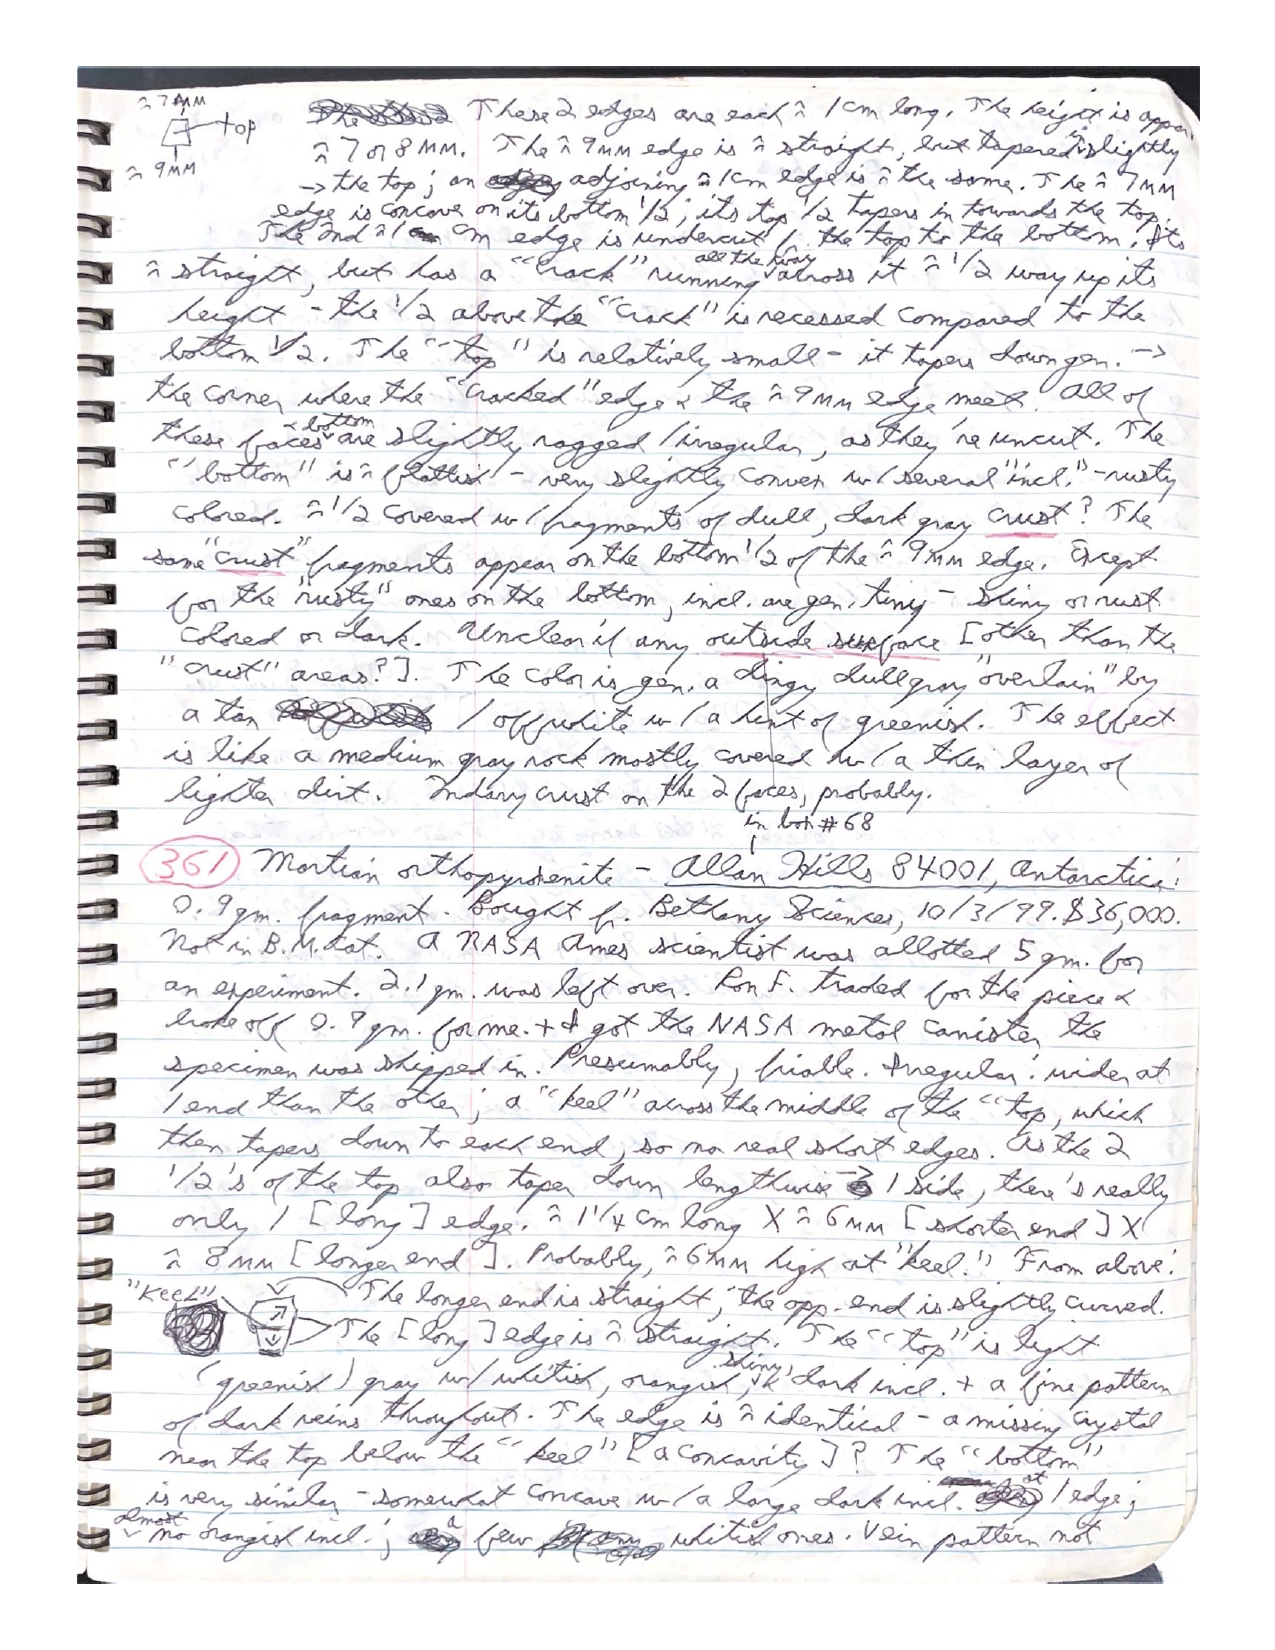 ≈ 7 MM
top
≈ 9 MM
These 2 edges are each ≈ 1 cm long. The height is appar.
≈ 7 or 8 MM. The ≈ 9MM edge is ≈ straight, but tapered in slightly
→ the top; an adjoining ≈ 1cm edge is ≈ the same. The ≈ 7MM
edge is concave on its bottom 1/2; its top 1/2 tapers in towards the top.
The 2nd ≈ 1 cm edge is undercut f. the top to the bottom. Its
≈ straight, but has a "crack" running all the way across it ≈ 1/2 way up its
height - the 1/2 above the "crack" is recessed compared to the
bottom 1/2. The "top" is relatively small - it tapers down gen. →
the corner where the "cracked" edge & the ≈ 9MM edge meet. All of
these faces & bottom are slightly ragged / irregular, as they're uncut. The
"bottom" is ≈ flattish - very slightly convex w/ several "incl." - rusty
colored. ≈ 1/2 covered w/ fragments of dull, dark gray crust? The
same "crust" fragments appear on the bottom 1/2 of the ≈ 9MM edge. Except
for the "rusty" ones on the bottom, incl. are gen. tiny - shiny or rust
colored or dark. Unclear if any outside surface [other than the
"crust" areas?]. The color is gen. a dingy dull gray "overlain" by
a tan / off white w/ a hint of greenish. The effect
is like a medium gray rock mostly covered w/ a thin layer of
lighter dirt. 2ndary crust on the 2 faces, probably.
in box #68
361 Martian orthopyroxenite - Allan Hills 84001, Antarctica:
0.9 gm. fragment. Bought f. Bethany Sciences, 10/3/99. $36,000.
Not in B.M. Cat. A NASA Ames scientist was allotted 5 gm. for
an experiment. 2.1 gm. was left over. Ron F. traded for the piece &
broke off 0.9 gm. for me. + I got the NASA metal canister the
specimen was shipped in. Presumably, friable. Irregular: wider at
1 end than the other; a "keel" across the middle of the "top, which
then tapers down to each end, so no real short edges. As the 2
1/2's of the top also taper down lengthwise → 1 side, there's really
only 1 [long] edge. ≈ 1 1/4 cm long X ≈ 6 MM [shorter end] X
≈ 8 MM [longer end]. Probably, ≈ 6MM high at "keel." From above:
"Keel"
The longer end is straight; the opp. end is slightly curved.
The [long] edge is ≈ straight. The "top" is light
(greenish) gray w/ whitish, orangish, & shiny, dark incl. + a fine pattern
of dark veins throughout. The edge is ≈ identical - a missing crystal
near the top below the "keel" [a concavity]? The "bottom"
is very similar - somewhat concave w/ a large dark incl. at 1 edge;
almost no orangish incl.; a few whitish ones. Vein pattern not